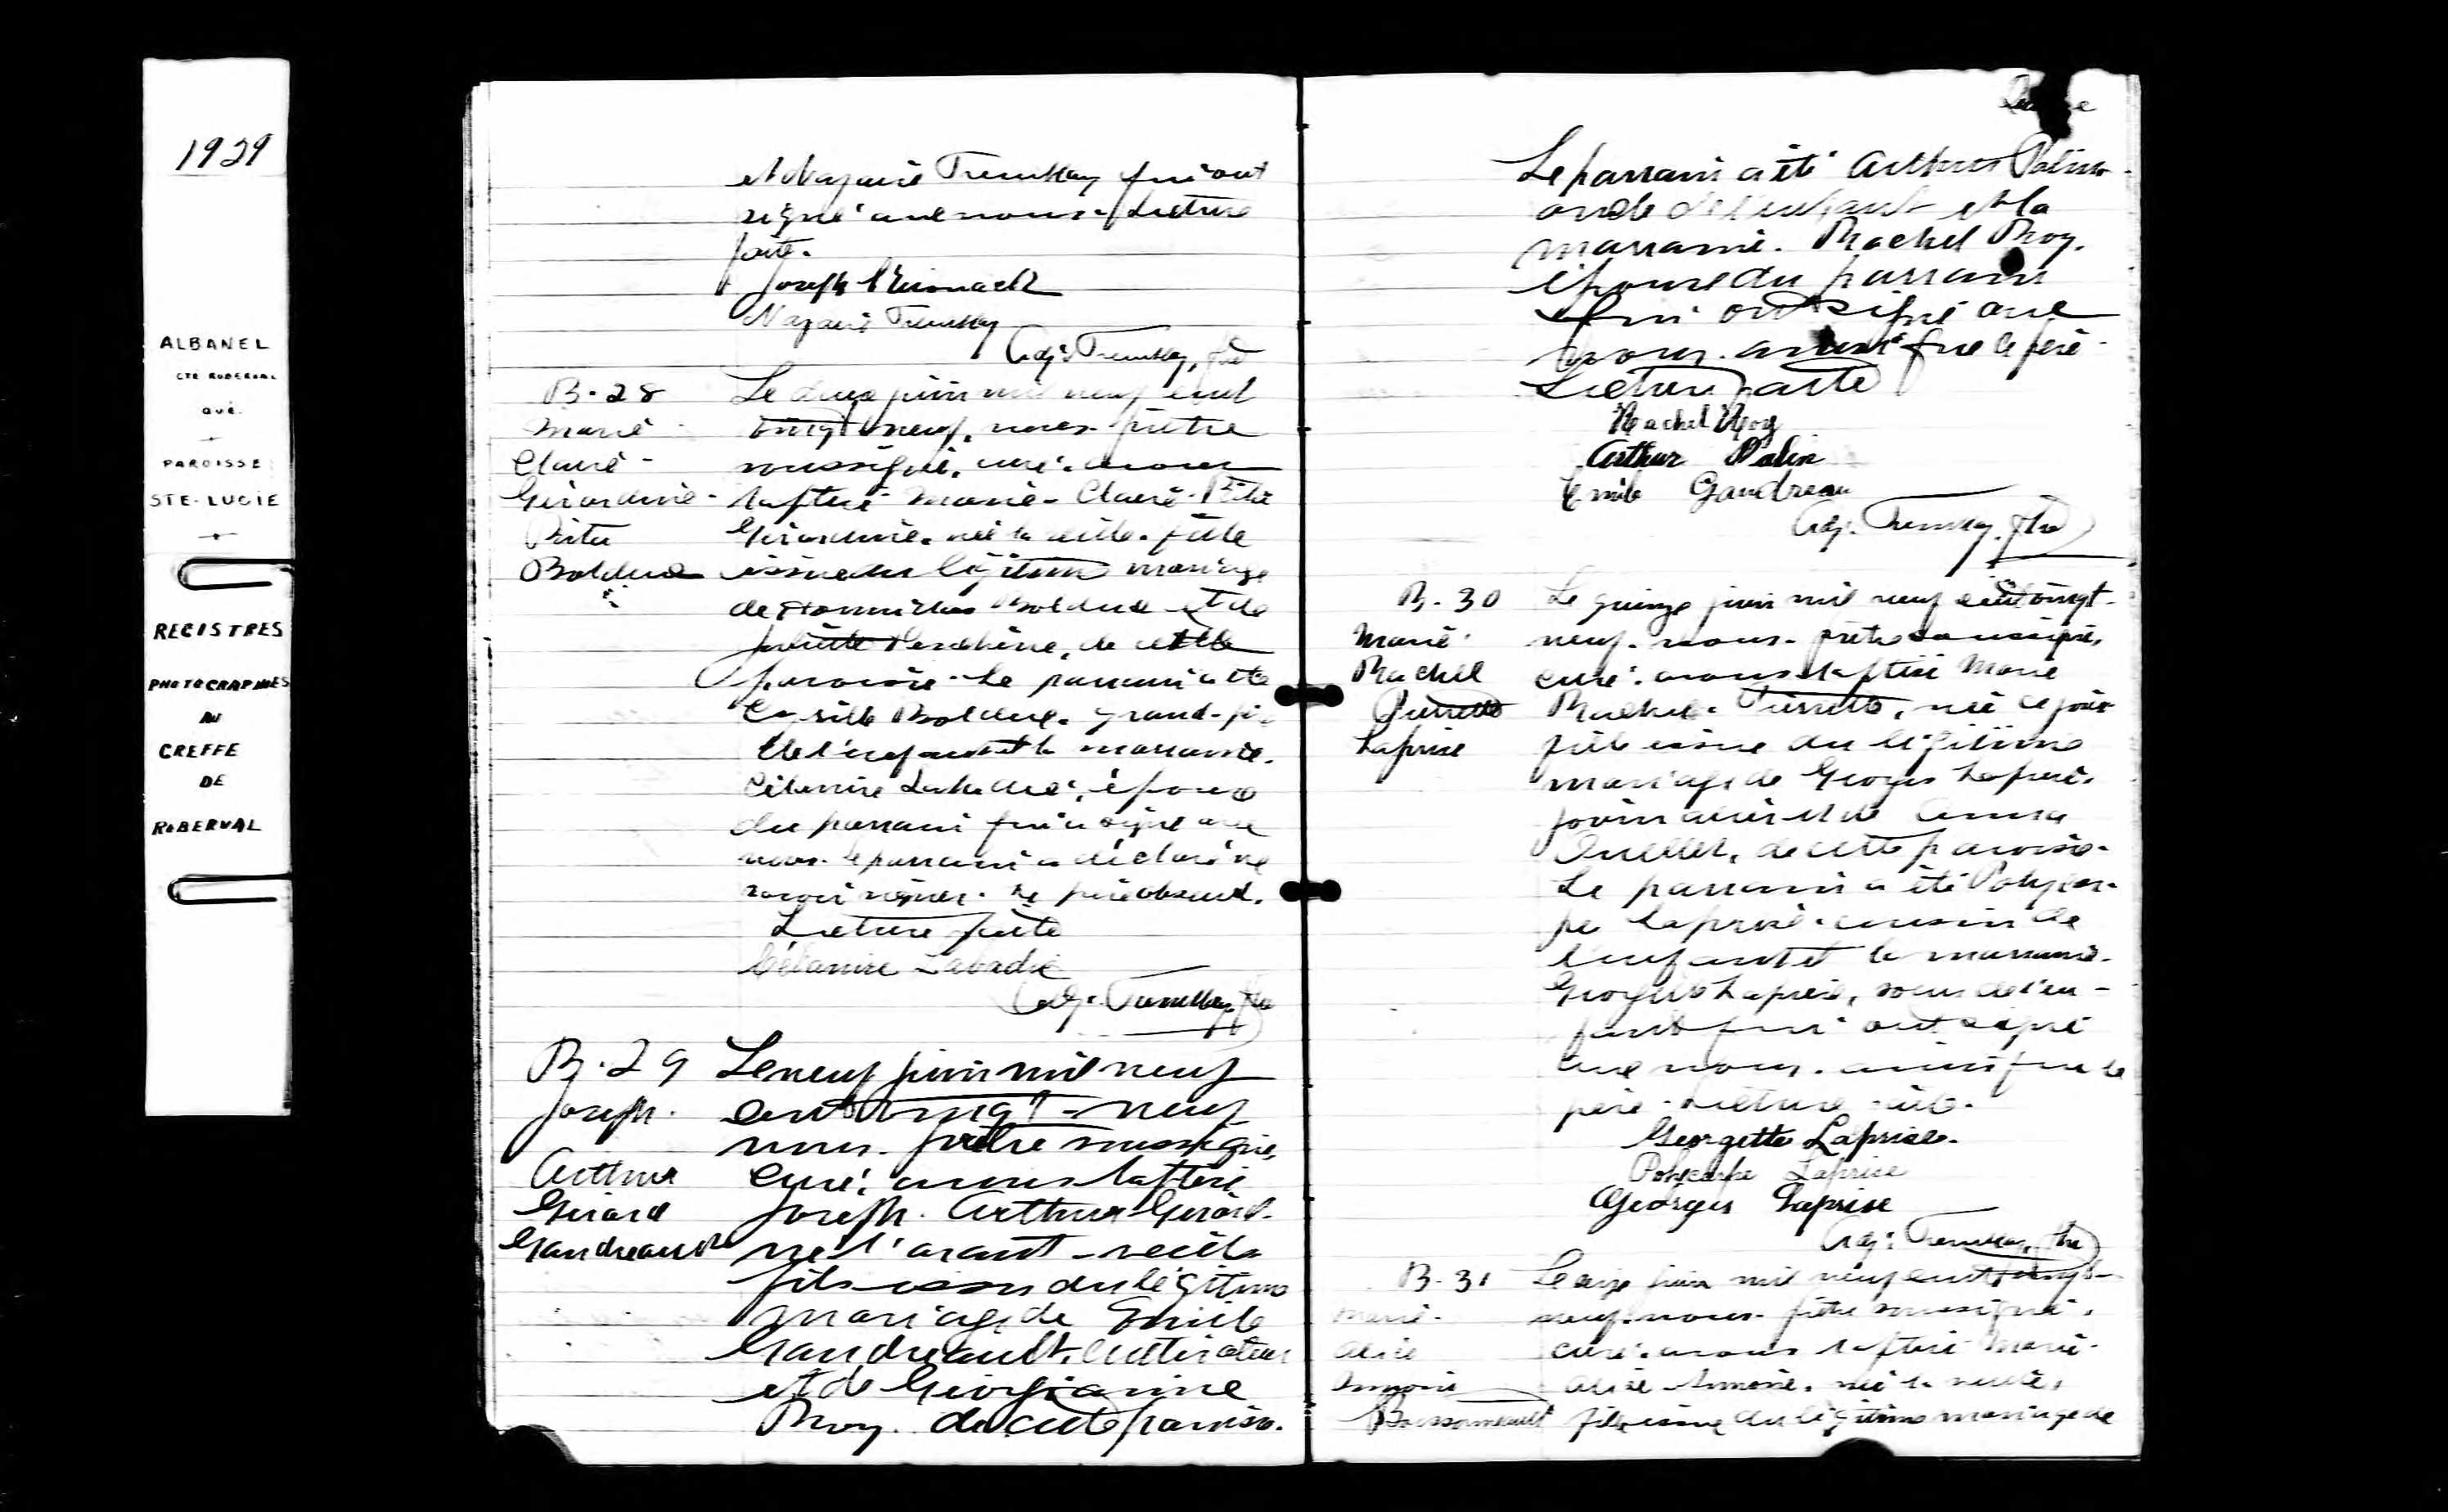 1929
ALBANEL
CTÉ ROBERVAL
QUÉ.
PAROISSE
STE-LUCIE
REGISTRES
PHOTOGRAPHIÉS
AU
GREFFE
DE
ROBERVAL
et Nazaire Tremblay qui ont
signé avec nous. Lecture
faite.
Joseph
Nazaire Tremblay
Adj. Tremblay, ptre
B-28
Marie
Claire-
Girardine-
Rita
Bolduc
Le deux juin mil neuf cent
vingt neuf, nous prêtre
soussigné, curé, avons
baptisé Marie-Claire-Rita
Girardine, née la veille, fille
issue du légitime mariage
de Bolduc et de
Juliette Deschêne, de cette
paroisse. Le parrain a été
Bolduc, grand-père
de l'enfant et la marraine,
Célanire Labadie, épouse
du parrain qui a signé avec
nous. le parrain a déclaré ne
savoir signer. Le père absent.
Lecture faite
Célanire Labadie
Adj. Tremblay, ptre
B-29
Joseph.
Arthur
Gérard
Gaudreault
Le neuf juin mil neuf
cent vingt-neuf
nous, prêtre soussigné,
curé, avons baptisé
Joseph. Arthur Gérard.
né l'avant-veille
fils issu du légitime
mariage de Emile
Gaudreault, cultivateur
et de Georgianne
Roy. de cette paroisse.
Le parrain a été Arthur Palin
oncle de l'enfant et la
marraine. Rachel Roy.
épouse du parrain
qui ont signé avec
nous. ainsi que le père-
Lecture faite
Rachel Roy
Arthur Palin
Emile Gaudreau
Adj. Tremblay, ptre
B-30
Marie
Rachel
Pierrette
Laprise
Le quinze juin mil neuf cent vingt-
neuf, nous, prêtre soussigné,
curé, avons baptisé Marie
Rachel. Pierrette, née ce jour
fille issue du légitime
mariage de Georges Laprise,
journalier et de Anna
Ouellet, de cette paroisse.
Le parrain a été Polycar-
pe Laprise, cousin de
l'enfant et la marraine.
Georgette Laprise, soeur de l'en-
fant qui ont signé
avec nous. ainsi que le
père. Lecture faite.
Georgette Laprise.
Polycarpe Laprise
Georges Laprise
Adj. Tremblay, ptre
B-31
Marie-
Alice
Simone
Boissonneault
Le seize juin mil neuf cent vingt-
neuf, nous, prêtre soussigné,
curé, avons baptisé Marie-
Alice-Simone, née la veille,
fille issue du légitime mariage de